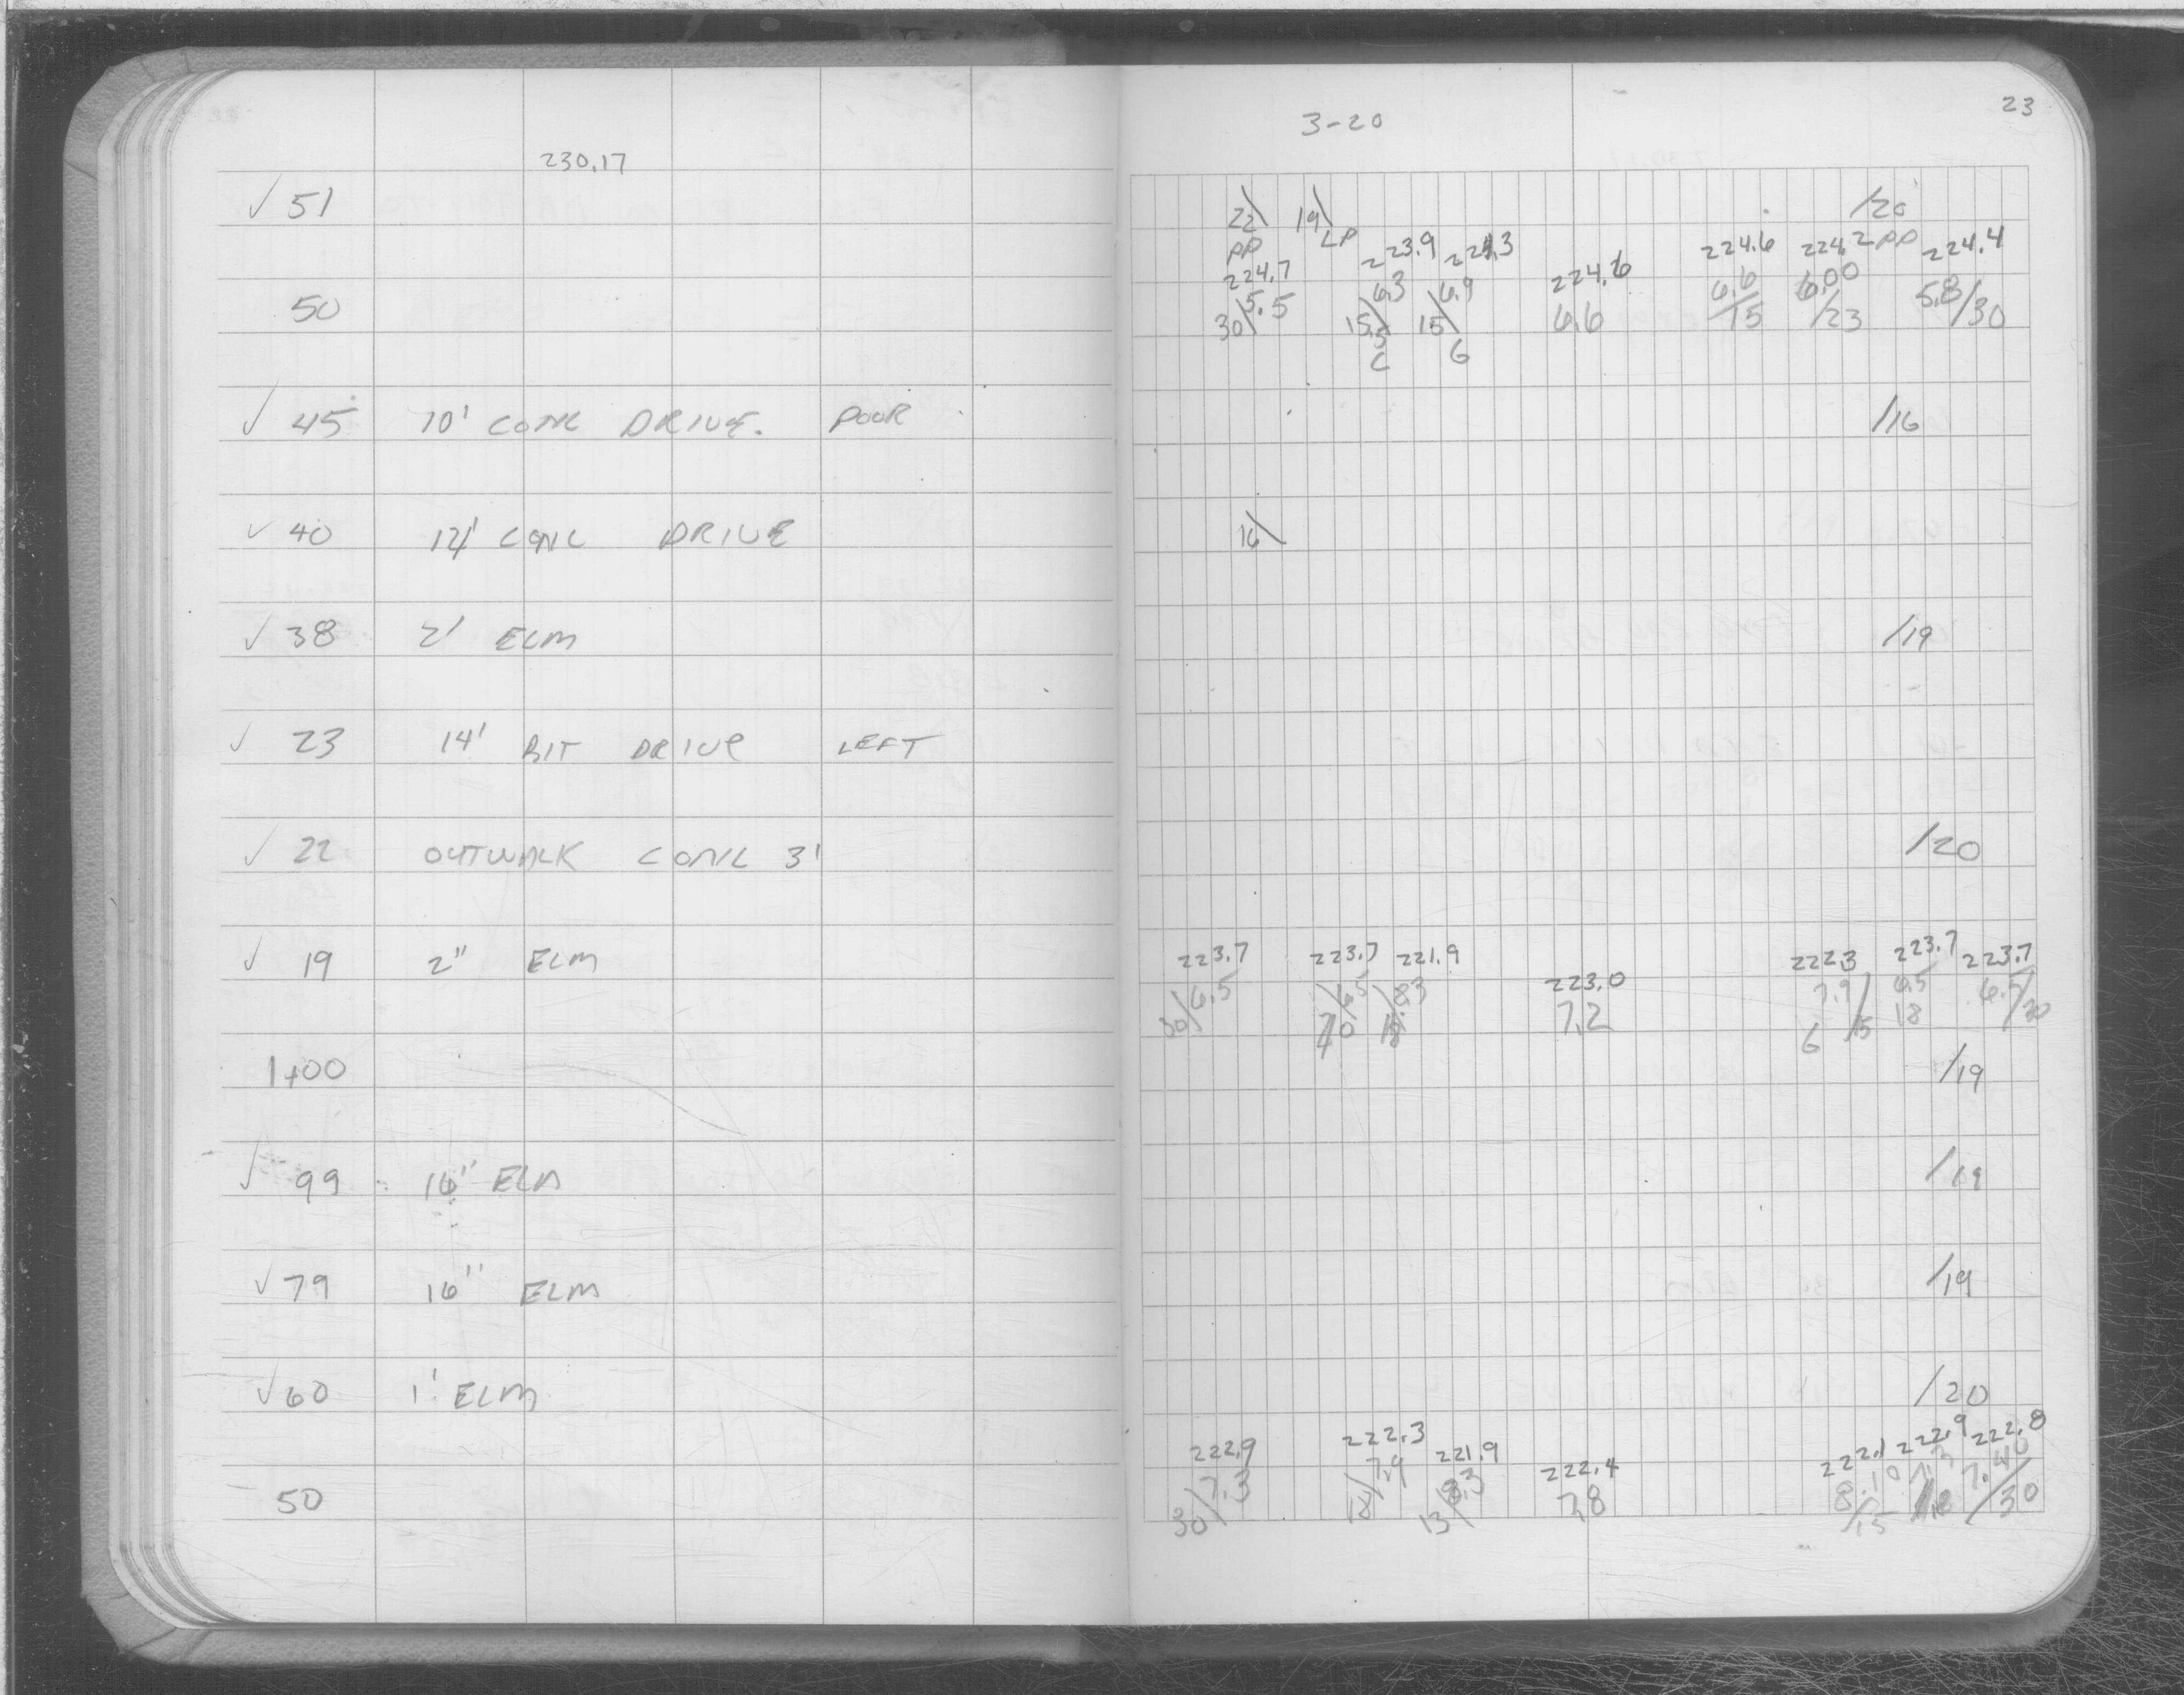 230.17
✓ 51
50
✓ 45 10' CONC DRIVE. POOR
✓ 40 12' CONC DRIVE
✓ 38 2' ELM
✓ 23 14' BIT DRIVE LEFT
✓ 22 OUTWALK CONC 3'
✓ 19 2" ELM
1+00
✓ 99 16" ELM
✓ 79 16" ELM
✓ 60 1' ELM
50
23
3-20
22\ 19\ /20
PP LP 223.9 224.6 224.2 PP 224.4
224.7 6.3 6.9 224.6 6.6 6.00 5.8/30
30\5.5 15.5 15\ 6.6 /15 /23
C G
/16
16\
/19
/20
223.7 223.7 221.9 223.0 222.3 223.7 223.7
30\6.5 \6.5 \8.3 7.2 7.9/15 6.5 6.5/30
18
G
/19
/19
/19
/20
222.9 222.3 221.9 222.4 222.1 222.9 222.8
30\7.3 18\7.9 13\8.3 7.8 8.10/15 7.3 7.40/30